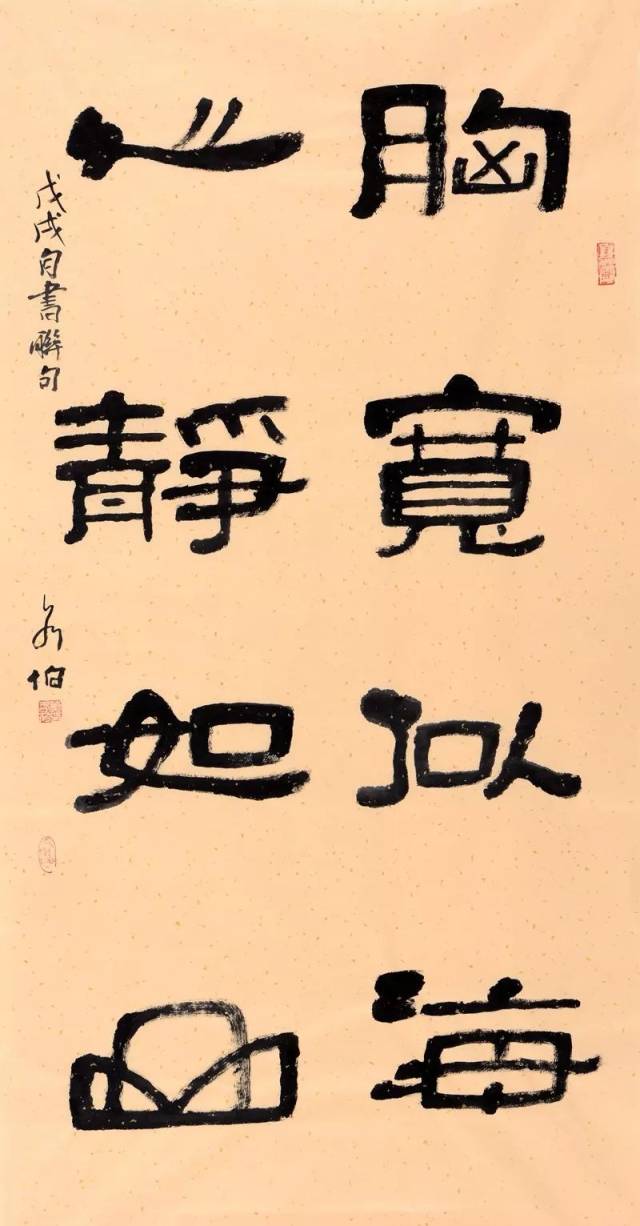 胸寬似海
心靜如山
戊戌自書聯句
伯